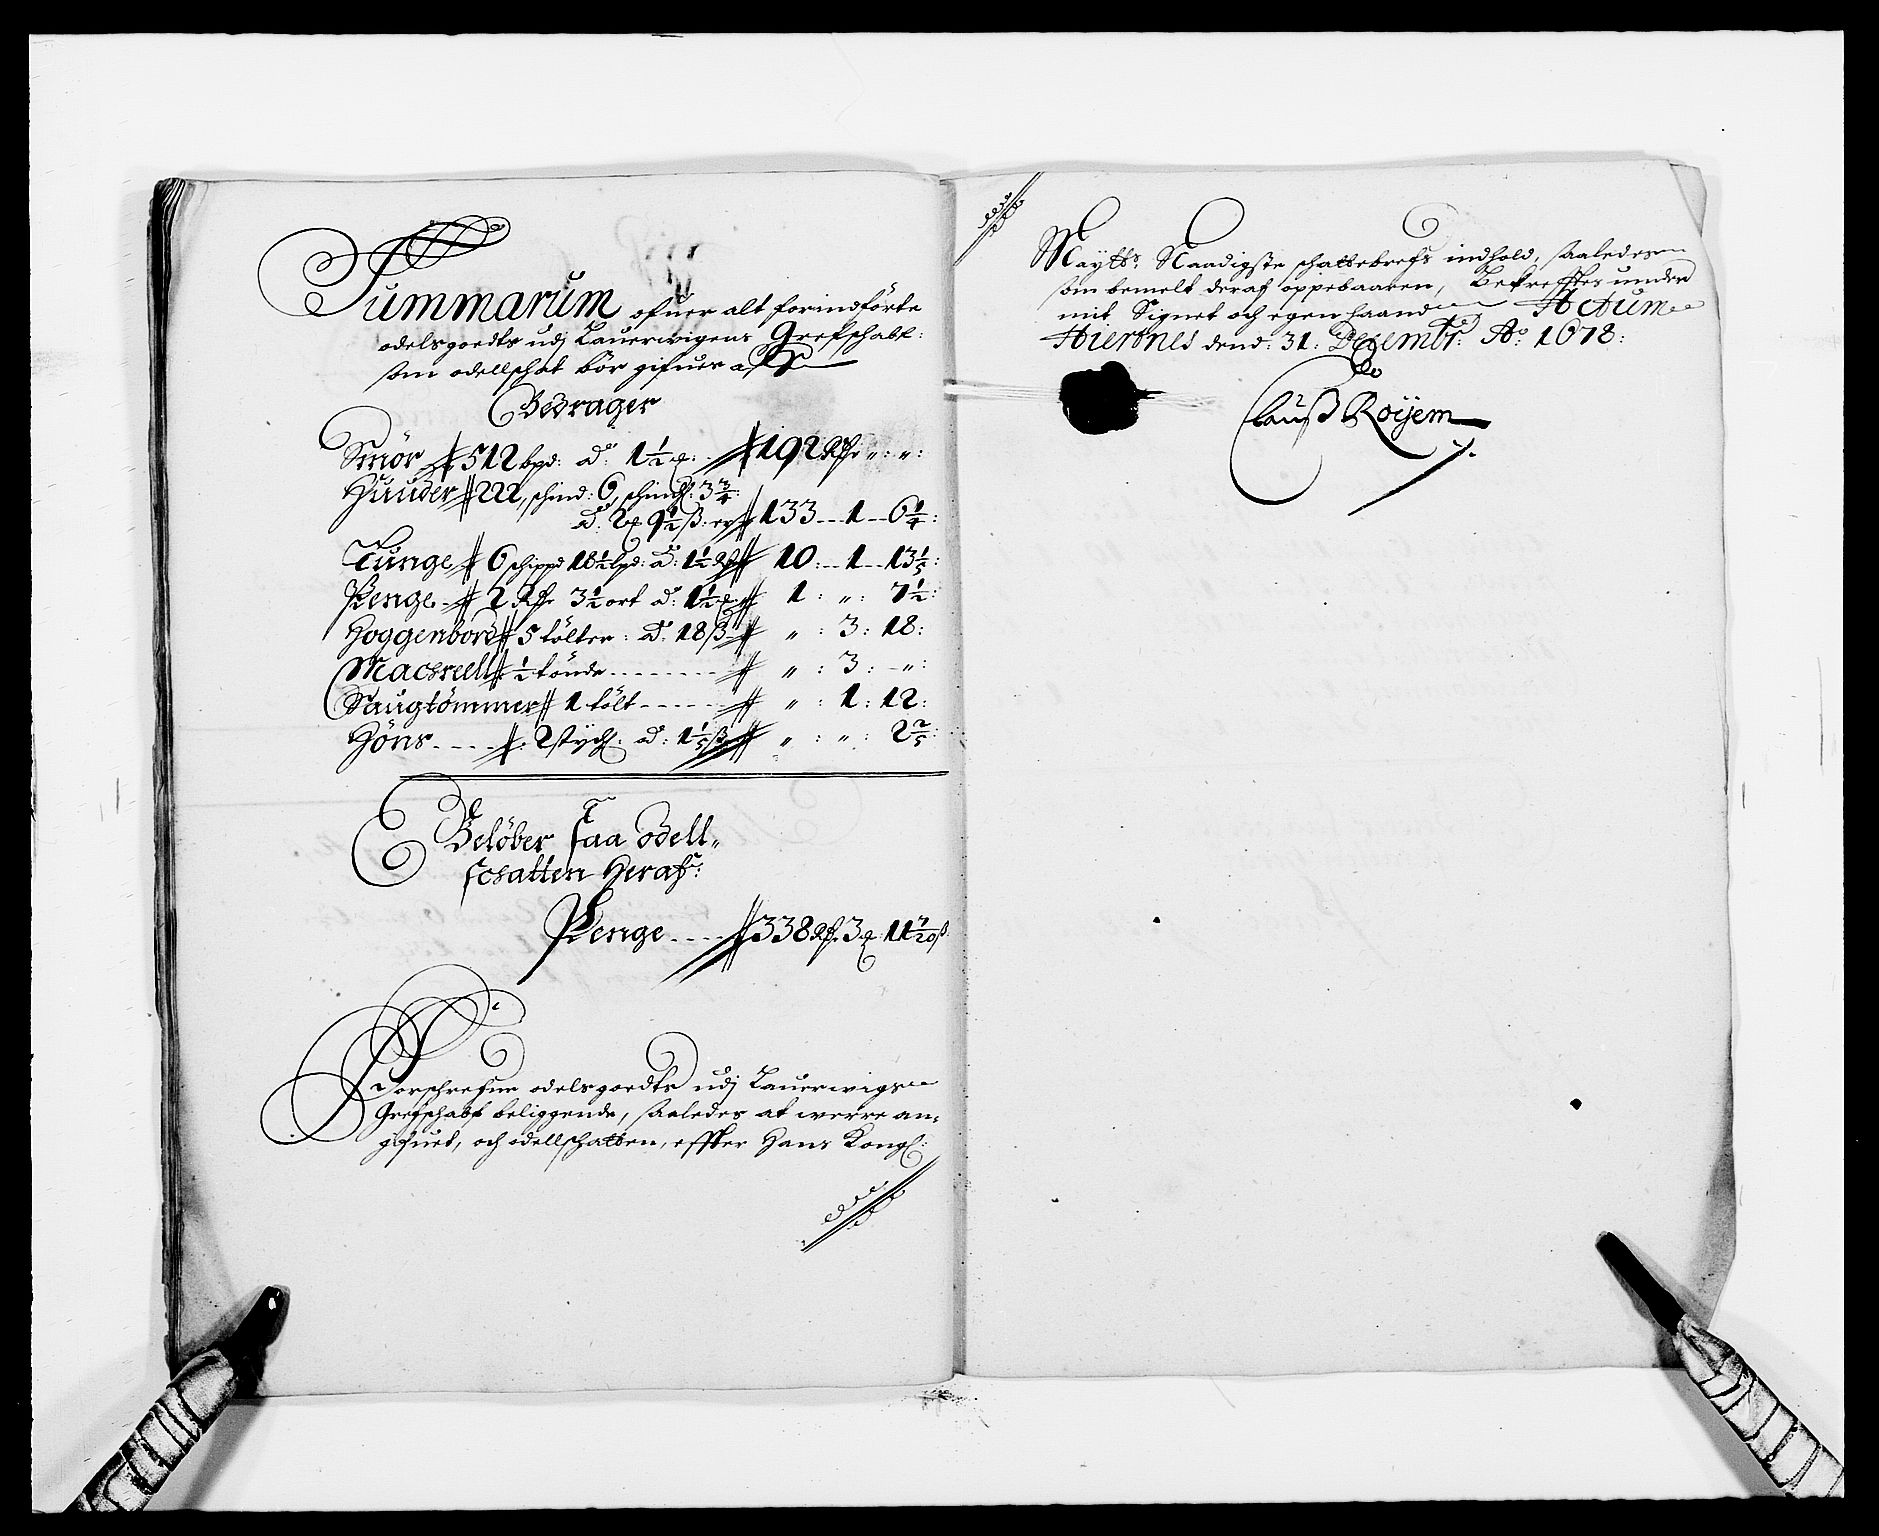 Summarum ofuer alt forindførte
odelsgoedts udj Lauerwigens Grefschabt:
som odellschat bør gifues af
Bedrager
Smør 512 bpd: a: 1½ 192 Rdr „: „:
Huuder 222, schind: 6, schindf: 3¾
a: 2 9½ ß: er 133 - 1 - 6¼:
Tunge 6 schippd 18½ lpd: a: 1½ Rdr 10: - 1 - 13⅕:
Penge 2 Rdr 3½ ort a: 1½ 1: „: 7½:
Hoggenbord 5 tölter: a: 18 ß „: 3: 18:
Macsrell ½ tønde „: 3: „:
Saugtømmer 1 tölt „: 1: 12:
Höns 2 stych: a: 1⅕ ß „: „: 2⅖:
Beløber saa odell„
schatten heraf:
Penge 338 Rdr 3 11 7/20 ß
Forschrefne odelsgoedts udj Lauerwigs
Grefschabt beliggende, saaledes at werre an„
gifuet, och odellschatten, effter Hans Kongl:
Maytts: Naadigste schattebrefs indhold, saaledes
som bemelt deraf oppebaaren, Bekreffter under
mit Signet och egen haand Actum
Hiertnes dend: 31: Decembr: Ao: 1678:
Clauß Röyem